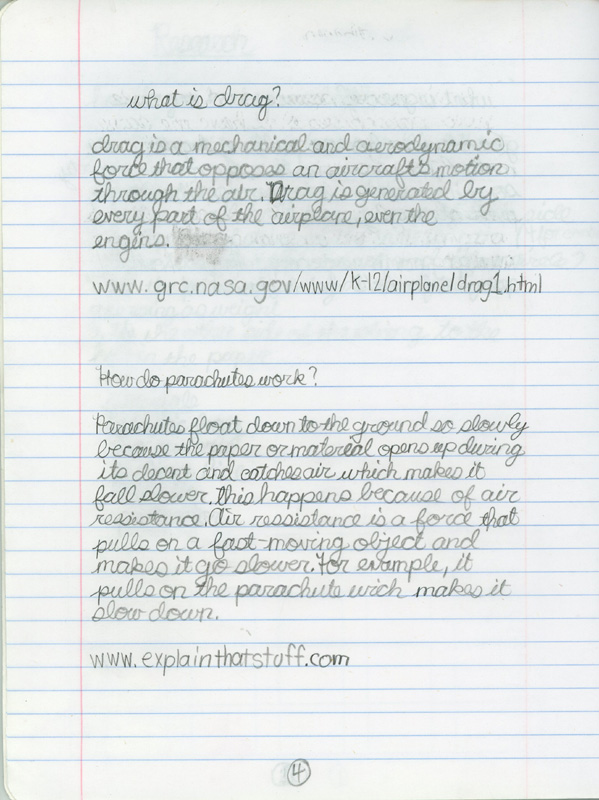 what is drag?
drag is a mechanical and aerodynamic
force that opposes an aircraft's motion
through the air. Drag is generated by
every part of the airplane, even the
engins.
www.grc.nasa.gov/www/k-12/airplane/drag1.html
How do parachutes work?
Parachutes float down to the ground so slowly
because the paper or matereal opens up during
its decent and catches air which makes it
fall slower. this happens because of air
ressistance. Air ressistance is a force that
pulls on a fast-moving object and
makes it go slower. For example, it
pulls on the parachute wich makes it
slow down.
www.explainthatstuff.com
4